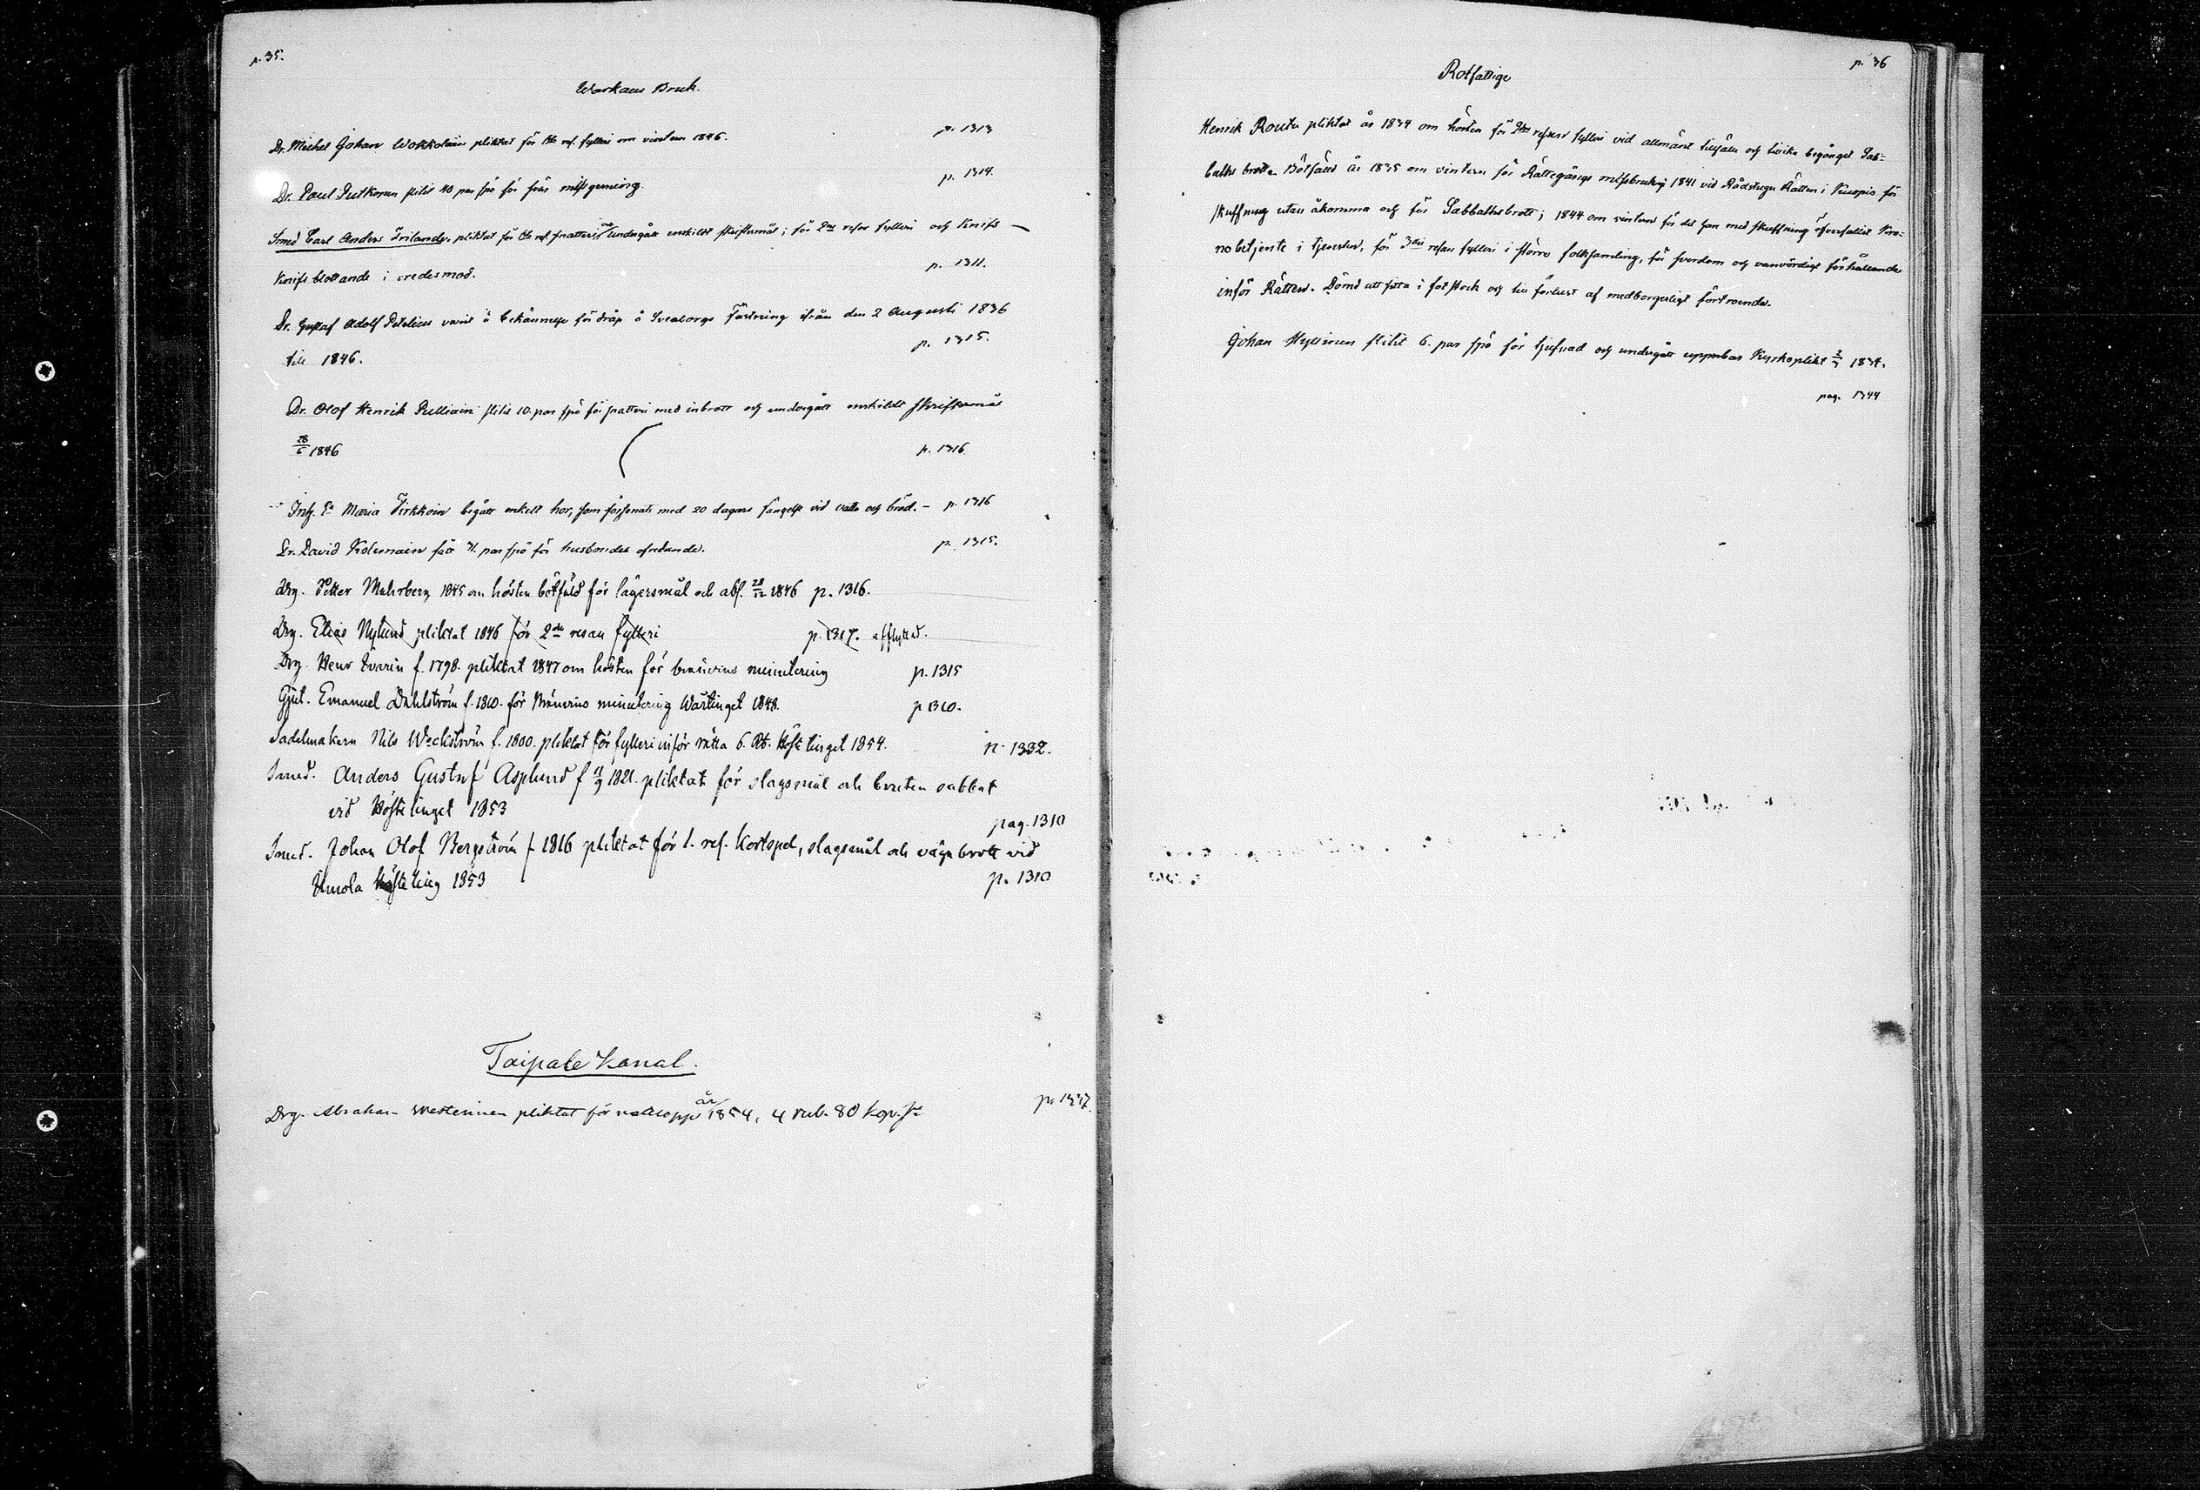 p. 35.
Warkaus Bruk.
Dr. Michel Johan Wokkolain pliktat för 1sta res. fylleri om vintern 1846. p. 1313
Dr. Paul Putkonen slitit 40 par spö för missgerning. p. 1314.
Smed Carl Anders Frilander pliktat för 1sta res. snatteri och undergått enskildt skriftermål; för 2dra resor fylleri och Knifs
Knifs blottande i vredesmod. p. 1311.
Dr. Gustaf Adolf varit å bekännelse för dråp å Sveaborgs Fästning ifrån den 2 Augusti 1836
till 1846. p. 1315.
Dr. Olof Henrik Pulliain slitit 10. par spö för snatteri med inbrott och undergått enskildt skriftermål
28/6 1846 p. 1316
Maria Tirkkoin begått enkelt hor, som försonats med 20 dagars fängelse vid vatten och bröd. – p. 1316
Dr. David Kolemain för husbondes p. 1315.
Drg. Petter Muhrberg 1845 om hösten bötfäld för lägersmål och abs. 28/12 1846 p. 1316.
Drg. Elias Nylund pliktat 1846 för 2dra resan fylleri p. 1317. afflyttad.
Drg Henr f. 1798. pliktat 1847 om hösten för bränvins minutering p. 1315
Gjut. Emanuel Dahlström f. 1810. för Bränvins minutering Wårtinget 1848. p 1310.
Sadelmakern Nils Weckström f. 1800. pliktat för fylleri inför rätta 6. Rb. Höste tinget 1854. p. 1332.
Smed. Anders Gustaf Asplund f 11/9 1821. pliktat för slagsmål och bruten sabbat
vid Höstetinget 1853 pag. 1310
Smed. Johan Olof Bergström f 1816 pliktat för 1. res. Kortspel, slagsmål och brott vid
Höste ting 1853 p. 1310
Taipale Kanal.
Drg. Abraham Westerinen pliktat för år 1854, 4 rub. 80 kop. Sr p. 1337
p. 36
Rotfattige
Henrik Routu pliktat år 1834 om hösten för 2dra resan fylleri vid allmänt tillfälle och tillika begånget Sab-
baths brott. Bötfäld år 1835 om vintern för Rättegångs missbruk; 1841 vid Rådstugu Rätten i Kuopio för
skuffning utan åkomma och för Sabbathsbrott; 1844 om vintern för det han med skuffning öfverfallit Kro-
nobetjente i tjensten, för 3die resan fylleri i större folksamling, för svordom och vanvördigt förhållande
inför Rätten. Dömd att sitta i fotstock och till förlust af medborgerligt förtroende.
Johan Hyttinen slitit 6. par spö för tjufnad och undergått uppenbar Kyrkoplikt 1834.
pag. 1344